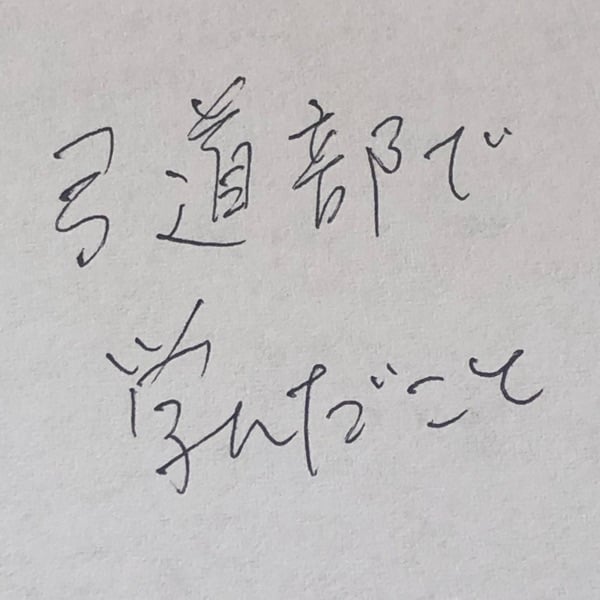 弓道部で
学んだこと